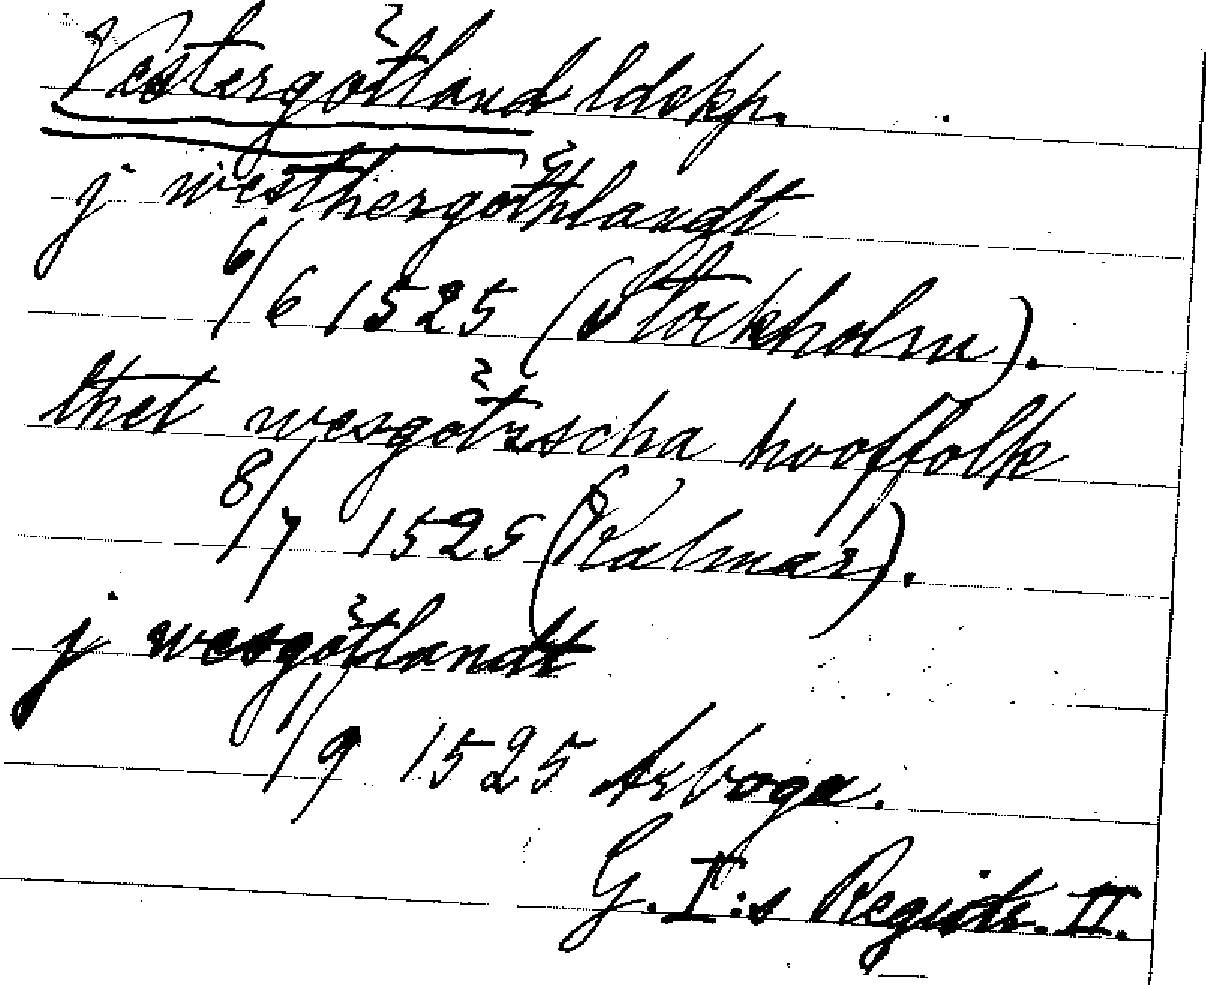 Vestergötland ldskp.
j westhergöthlandt
6/6 1525 (Stockholm).
thet wesgötzscha hooffolk
8/7 1525 (Kalmar).
j wesgötlandt
1/9 1525 Arboga.
G. I:s Registr. II.